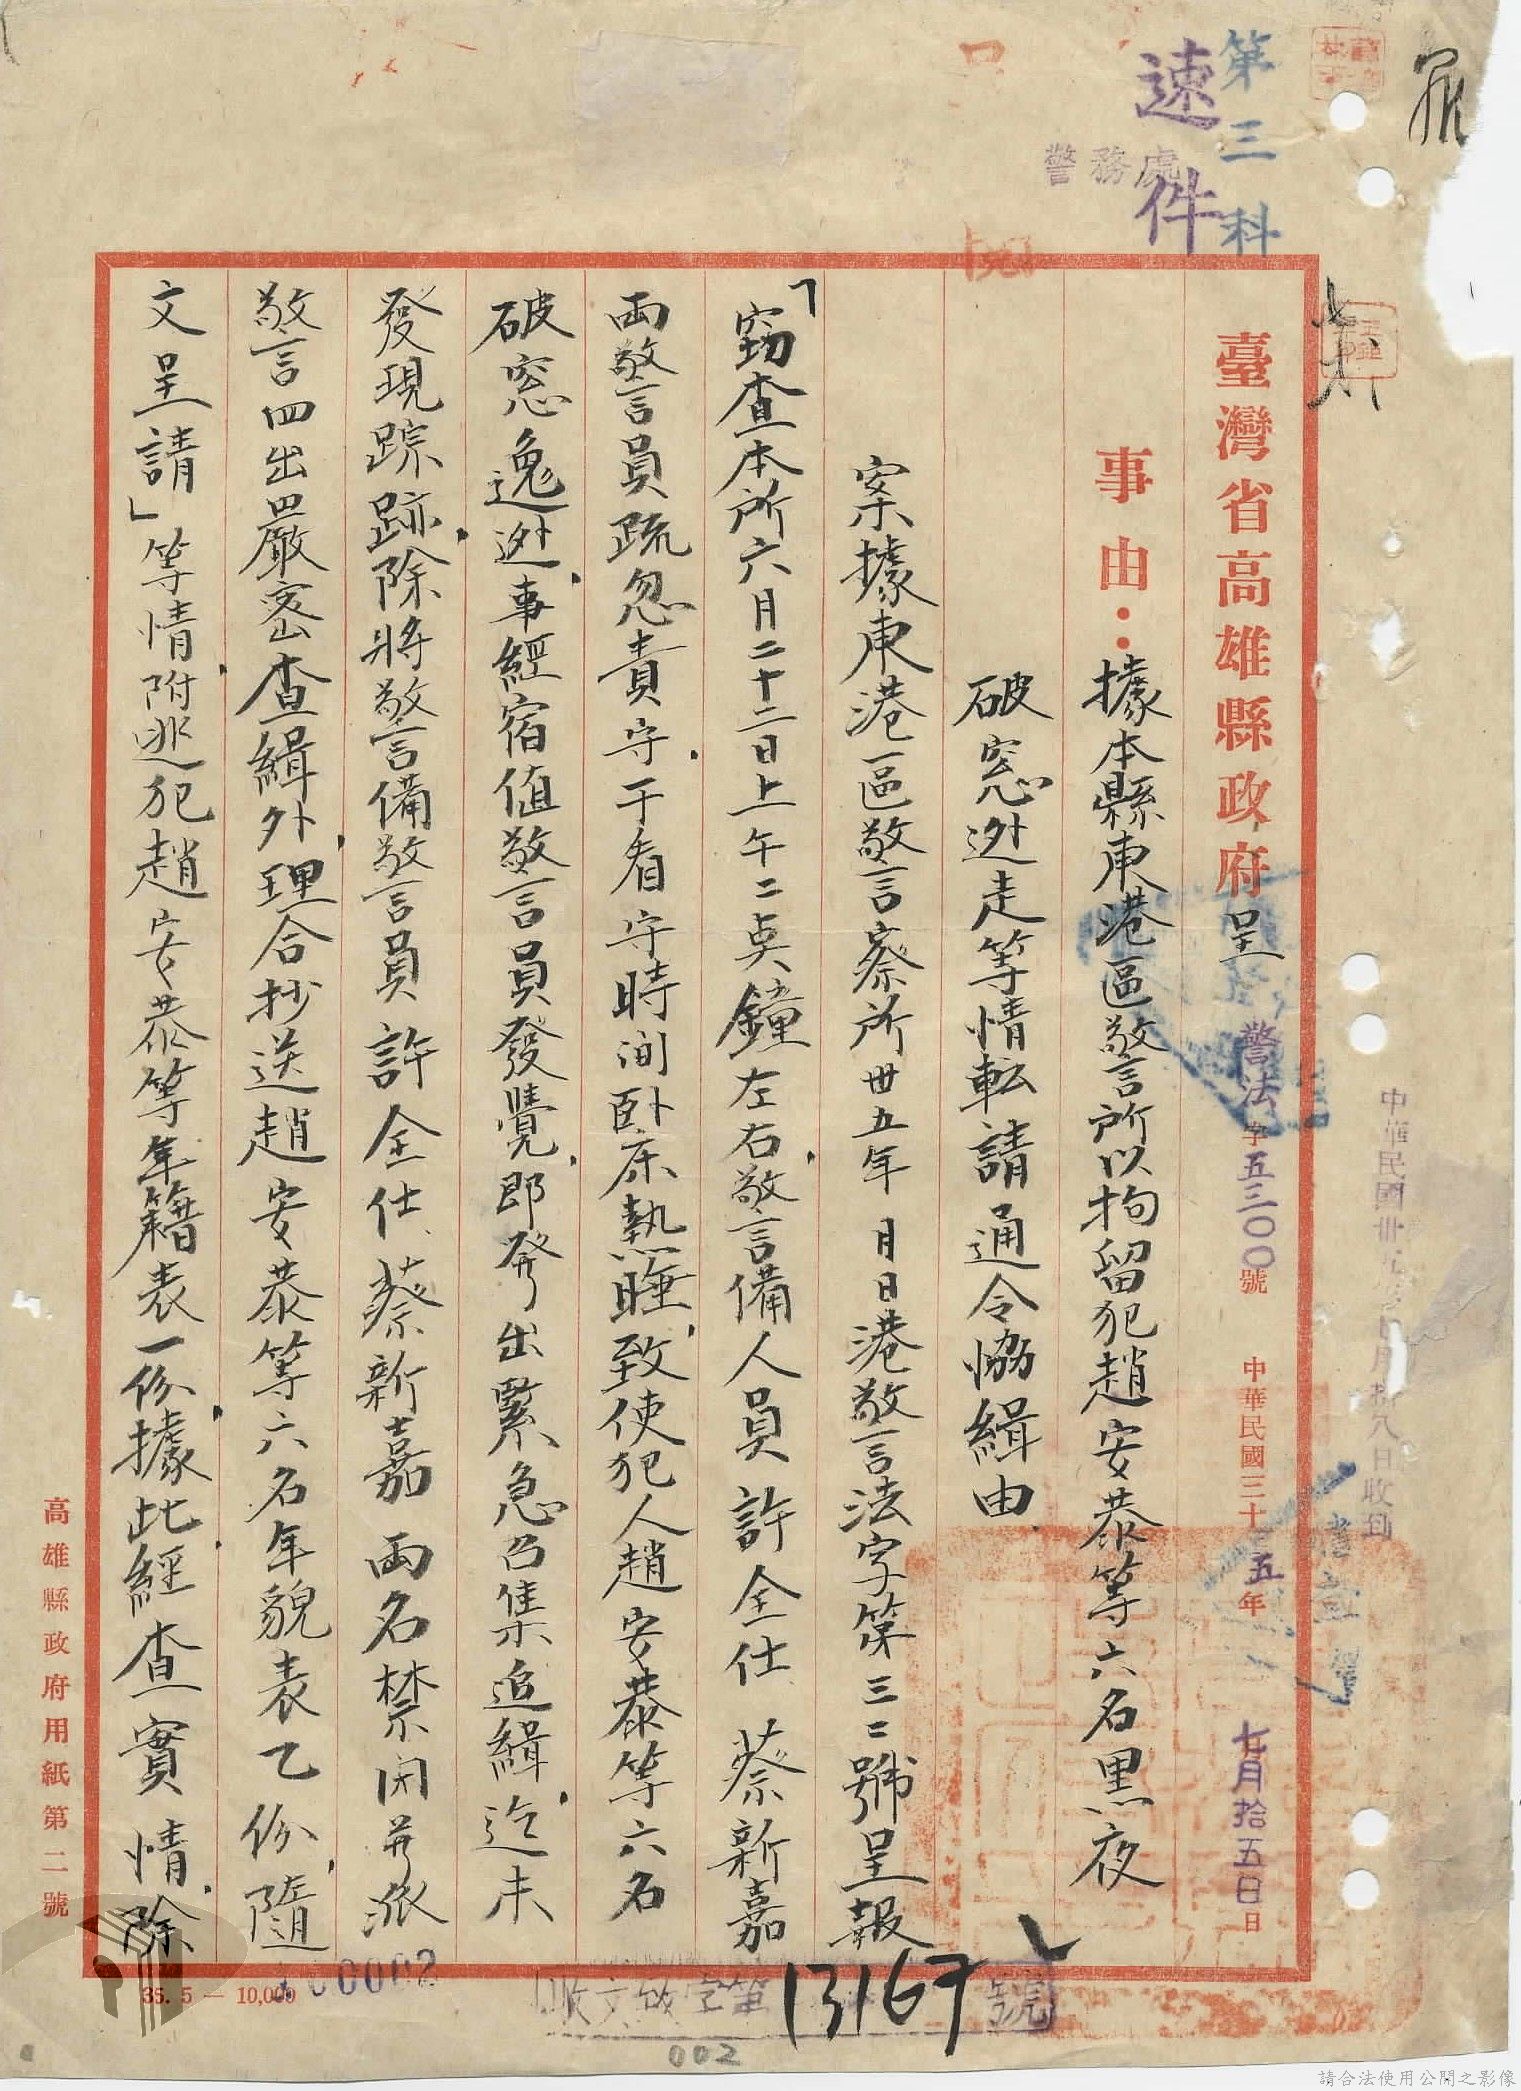 第三科
速件
警務處
臺灣省高雄縣政府呈
警法字五三〇〇號 中華民國三十五年七月拾五日
事由：據本縣東港區警所以拘留犯趙安恭等六名黑夜
破窓逃走等情転請通令協緝由
案據東港區警察所卅五年 月日港警法字第三二號呈報
「竊查本所六月二十二日上午二点鐘左右警備人員許全仕 蔡新嘉
両警員疏忽責守于看守時间卧床熟睡致使犯人趙安恭等六名
破窓逸逃事經宿值警員發覺即発出緊急召集追緝迄未
發現踪跡除將警備警員許全仕、蔡新嘉両名禁闭并派
警四出嚴密查緝外理合抄送趙安恭等六名年貌表乙份隨
文呈請」等情附逃犯趙安恭等年籍表一份據此經查實情除
高雄縣政府用紙第二號
35. 5 — 10,000
00002
收文 字第13167號
002
請合法使用公開之影像